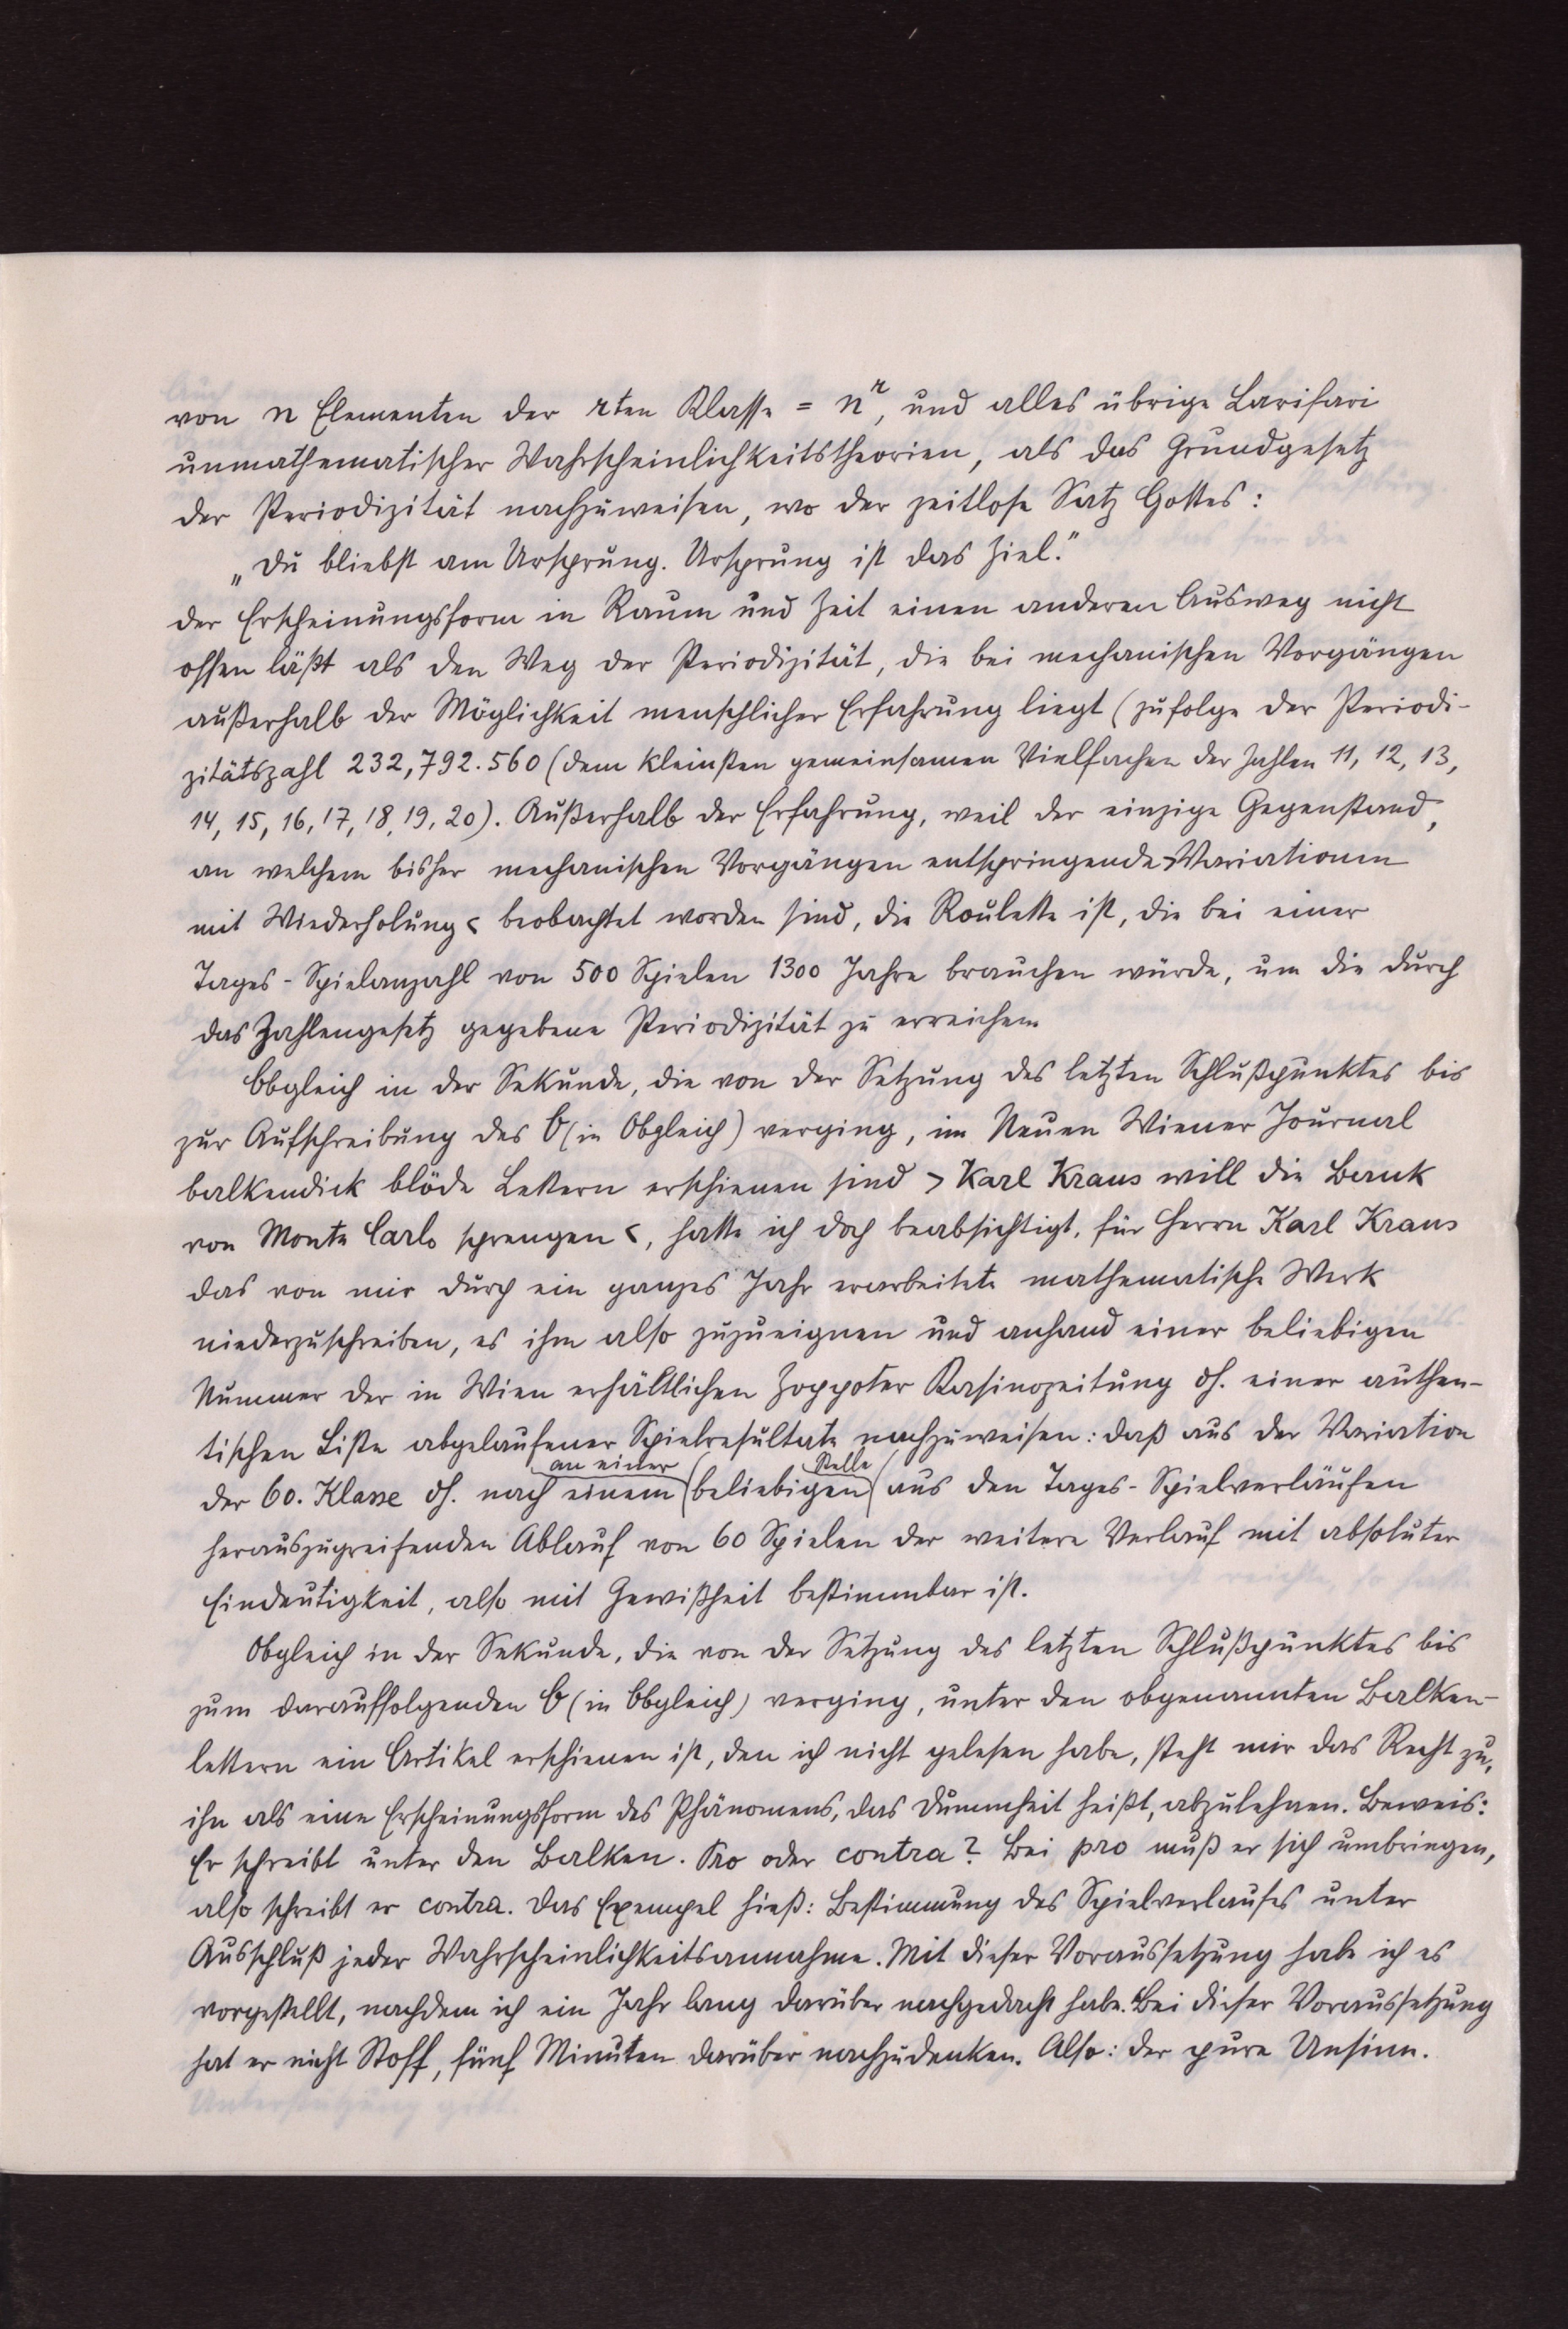 von n Elementen der rten Klasse = nʳ, und alles übrige Larifari
unmathematischer Wahrscheinlichkeitstheorien, als das Grundgesetz
der Periodizität nachzuweisen, wo der zeitlose Satz Gottes:
„Du bliebst am Ursprung. Ursprung ist das Ziel."
der Erscheinungsform in Raum und Zeit einen anderen Ausweg nicht
offen läßt als den Weg der Periodizität, die bei mechanischen Vorgängen
außerhalb der Möglichkeit menschlicher Erfahrung liegt (zufolge der Periodi-
zitätszahl 232,792.560 (dem kleinsten gemeinsamen Vielfachen der Zahlen 11, 12, 13,
14, 15, 16, 17, 18, 19, 20). Außerhalb der Erfahrung, weil der einzige Gegenstand,
an welchem bisher mechanischen Vorgängen entspringende >Variationen
mit Wiederholung< beobachtet worden sind, die Roulette ist, die bei einer
Tages-Spielanzahl von 500 Spielen 1300 Jahre brauchen würde, um die durch
das Zahlengesetz gegebene Periodizität zu erreichen.
Obgleich in der Sekunde, die von der Setzung des letzten Schlußpunktes bis
zur Aufschreibung des O (in Obgleich) verging, im Neuen Wiener Journal
balkendick blöde Lettern erschienen sind >Karl Kraus will die Bank
von Monte Carlo sprengen<, hatte ich doch beabsichtigt, für Herrn Karl Kraus
das von mir durch ein ganzes Jahr erarbeitete mathematische Werk
niederzuschreiben, es ihm also zuzueignen und anhand einer beliebigen
Nummer der in Wien erhältlichen Zoppoter Kasinozeitung dh. einer authen-
tischen Liste abgelaufener Spielresultate nachzuweisen: daß aus der Variation
an einer Stelle
der 60. Klasse dh. nach einem (beliebigen) aus den Tages-Spielverläufen
herauszugreifenden Ablauf von 60 Spielen der weitere Verlauf mit absoluter
Eindeutigkeit, also mit Gewißheit bestimmbar ist.
Obgleich in der Sekunde, die von der Setzung des letzten Schlußpunktes bis
zum darauffolgenden O (in Obgleich) verging, unter den obgenannten Balken-
lettern ein Artikel erschienen ist, den ich nicht gelesen habe, steht mir das Recht zu,
ihn als eine Erscheinungsform des Phänomens, das Dummheit heißt, abzulehnen. Beweis:
Er schreibt unter den Balken. Pro oder contra? Bei pro muß er sich umbringen,
also schreibt er contra. Das Exempel hieß: Bestimmung des Spielverlaufes unter
Ausschluß jeder Wahrscheinlichkeitsannahme. Mit dieser Voraussetzung habe ich es
vorgestellt, nachdem ich ein Jahr lang darüber nachgedacht habe. Bei dieser Voraussetzung
hat er nicht Stoff, fünf Minuten darüber nachzudenken. Also: der pure Unsinn.